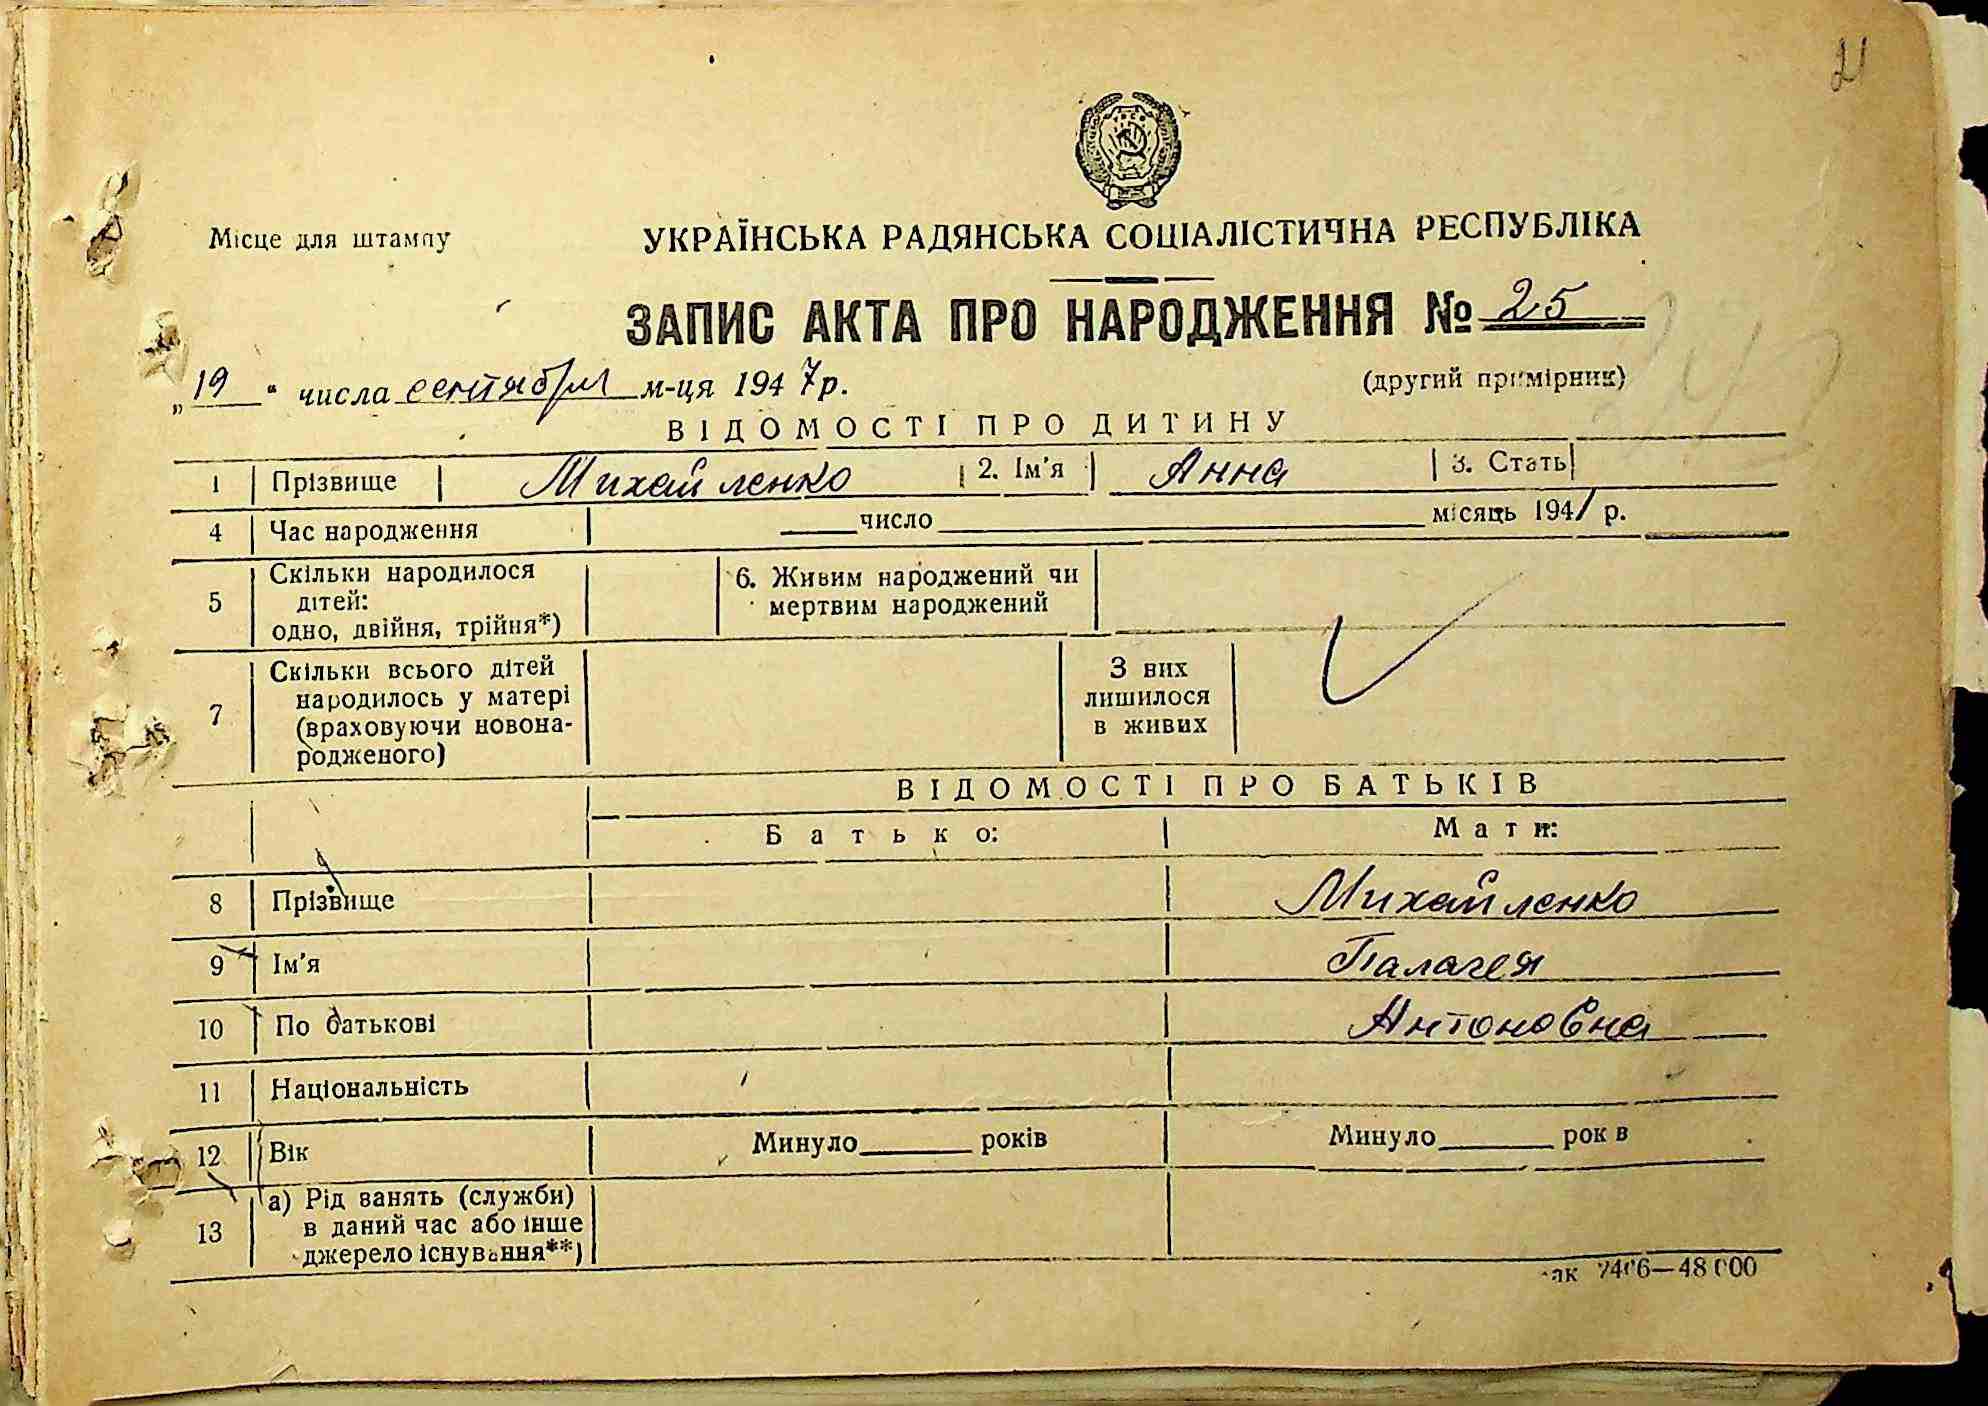 21
Місце для штампу
УКРАЇНСЬКА РАДЯНСЬКА СОЦІАЛІСТИЧНА РЕСПУБЛІКА
ЗАПИС АКТА ПРО НАРОДЖЕННЯ № 25
„19" числа сентября м-ця 1947 р.
(другий примірник)
ВІДОМОСТІ ПРО ДИТИНУ
1 Прізвище Михайленко 2. Ім'я Анна 3. Стать
4 Час народження число місяць 194 р.
5 Скільки народилося дітей: одно, двійня, трійня*) 6. Живим народжений чи мертвим народжений
7 Скільки всього дітей народилось у матері (враховуючи новонародженого) З них лишилося в живих
ВІДОМОСТІ ПРО БАТЬКІВ
Батько: Мати:
8 Прізвище Михайленко
9 Ім'я Палагея
10 По батькові Антоновна
11 Національність
12 Вік Минуло років Минуло рок в
13 а) Рід занять (служби) в даний час або інше джерело існування**)
48 000